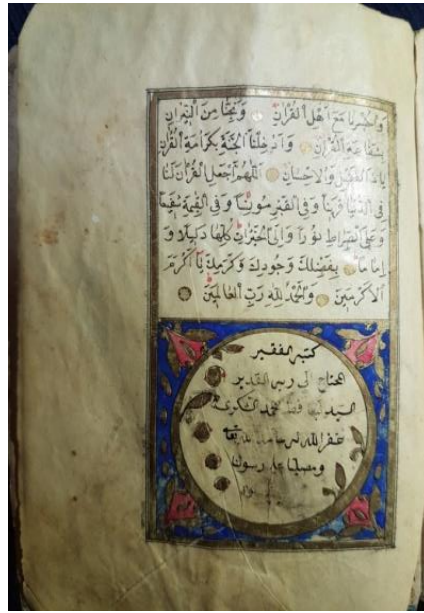 وَاحْشُرْنَا مَعَ اَهْلِ الْقُرْاٰنِ وَنَجِّنَا مِنَ النِّيرَانِ
بِشَفَاعَةِ الْقُرْاٰنِ وَاَدْخِلْنَا الْجَنَّةَ بِكَرَامَةِ الْقُرْاٰنِ
يَا ذَا الْفَضْلِ وَالْاِحْسَانِ اَللّٰهُمَّ اجْعَلِ الْقُرْاٰنَ لَنَا
فِى الدُّنْيَا قَرِينًا وَفِى الْقَبْرِ مُونِسًا وَفِى الْقِيٰمَةِ شَفِيعًا
وَعَلَى الصِّرَاطِ نُورًا وَاِلَى الْخَيْرَاتِ كُلِّهَا دَلِيلًا وَ
اِمَامًا بِفَضْلِكَ وَجُودِكَ وَكَرَمِكَ يَا اَكْرَمَ
الْاَكْرَمِينَ وَالْحَمْدُ لِلّٰهِ رَبِّ الْعَالَمِينَ
كتبه الفقير
المحتاج الى ربه القدير
السيد محمد الشكرى
غفر الله له
ومصليا على رسوله